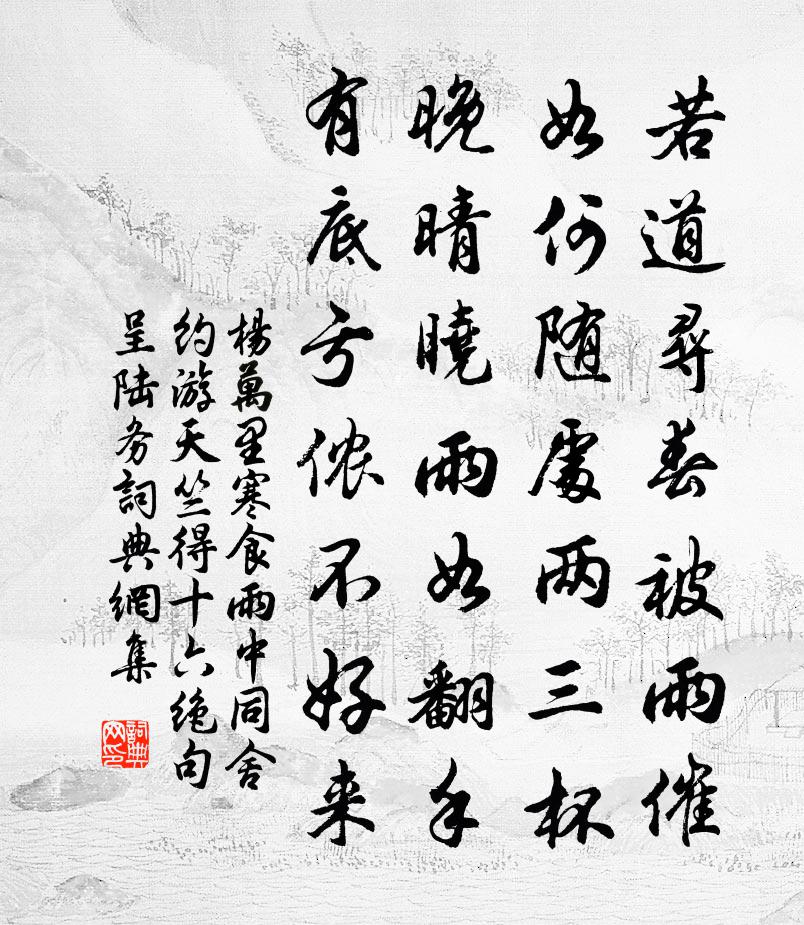 若道尋春被雨催
如何随處两三杯
晚晴曉雨如翻手
有底亏侬不好来
楊萬里寒食雨中同舍
约游天竺得十六绝句
呈陆务詞典網集
詞典
网印